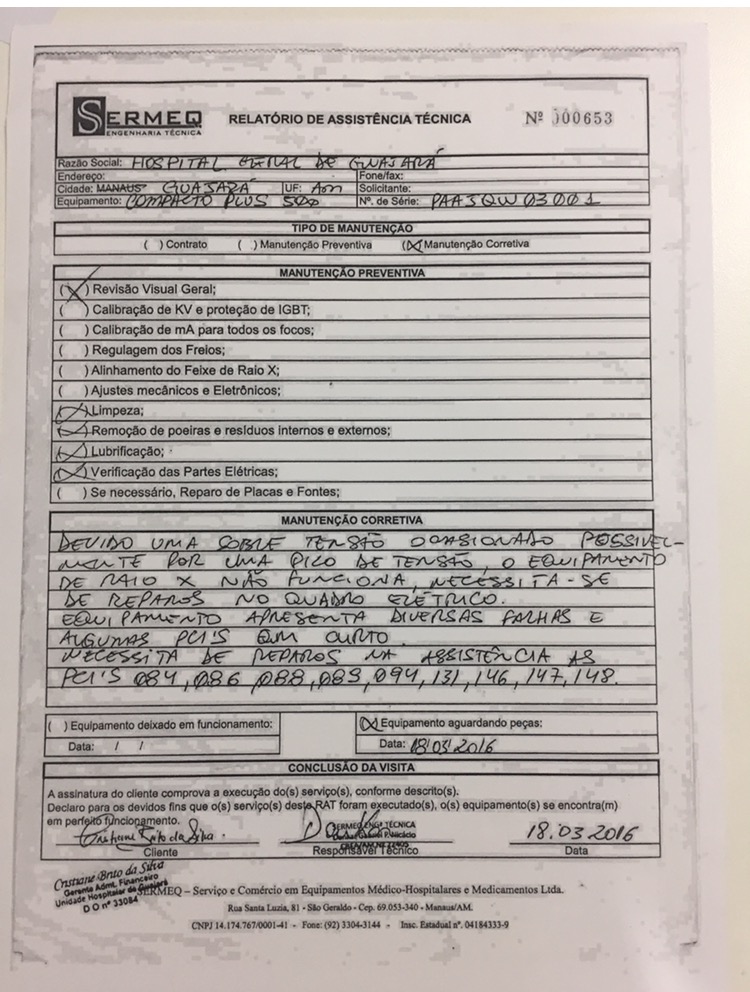 SERMEQ
ENGENHARIA TÉCNICA
RELATÓRIO DE ASSISTÊNCIA TÉCNICA
Nº 000653
Razão Social: HOSPITAL GERAL DE GUAJARÁ
Endereço: Fone/fax:
Cidade: MANAUS GUAJARÁ UF: Am Solicitante:
Equipamento: COMPACTO PLUS 500 Nº. de Série: PAA3QW03001
TIPO DE MANUTENÇÃO
( ) Contrato ( ) Manutenção Preventiva (X) Manutenção Corretiva
MANUTENÇÃO PREVENTIVA
(X) Revisão Visual Geral;
( ) Calibração de KV e proteção de IGBT;
( ) Calibração de mA para todos os focos;
( ) Regulagem dos Freios;
( ) Alinhamento do Feixe de Raio X;
( ) Ajustes mecânicos e Eletrônicos;
(X) Limpeza;
(X) Remoção de poeiras e resíduos internos e externos;
(X) Lubrificação;
(X) Verificação das Partes Elétricas;
( ) Se necessário, Reparo de Placas e Fontes;
MANUTENÇÃO CORRETIVA
DEVIDO UMA SOBRE TENSÃO OCASIONADO POSSIVEL-
MENTE POR UMA PICO DE TENSÃO, O EQUIPAMENTO
DE RAIO X NÃO FUNCIONA, NECESSITA-SE
DE REPAROS NO QUADRO ELÉTRICO.
EQUIPAMENTO APRESENTA DIVERSAS FALHAS E
ALGUMAS PCI'S EM CURTO.
NECESSITA DE REPAROS NA ASSISTÊNCIA AS
PCI'S 084, 086, 088, 089, 094, 131, 146, 147, 148.
( ) Equipamento deixado em funcionamento: (X) Equipamento aguardando peças:
Data: / / Data: 18/03/2016
CONCLUSÃO DA VISITA
A assinatura do cliente comprova a execução do(s) serviço(s), conforme descrito(s).
Declaro para os devidos fins que o(s) serviço(s) desta RAT foram executado(s), o(s) equipamento(s) se encontra(m)
em perfeito funcionamento.
Cristiane Brito da Silva SERMEQ ENGª TÉCNICA 18.03.2016
Cliente Responsável Técnico Data
Cristiane Brito da Silva
Gerente Adm. Financeiro
Unidade Hospitalar de Guajará
D O nº 33084
SERMEQ – Serviço e Comércio em Equipamentos Médico-Hospitalares e Medicamentos Ltda.
Rua Santa Luzia, 81 - São Geraldo - Cep. 69.053-340 - Manaus/AM.
CNPJ 14.174.767/0001-41 - Fone: (92) 3304-3144 - Insc. Estadual nº. 04184333-9